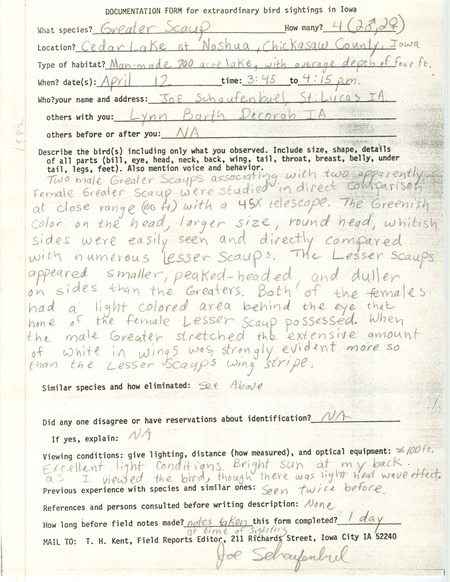 DOCUMENTATION FORM for extraordinary bird sightings in Iowa
What species? Greater Scaup How many? 4 (2♂,2♀)
Location? Cedar Lake at Nashua, Chickasaw County, Iowa
Type of habitat? Man-made 700 acre lake, with average depth of four ft.
When? date(s): April 12 time: 3:45 to 4:15 p.m.
Who? your name and address: Joe Schaufenbuel, St. Lucas IA
others with you: Lynn Barth Decorah IA
others before or after you: NA
1982
Describe the bird(s) including only what you observed. Include size, shape, details
of all parts (bill, eye, head, neck, back, wing, tail, throat, breast, belly, under
tail, legs, feet). Also mention voice and behavior.
Two male Greater Scaups associating with two apparently
female Greater Scaup were studied in direct comparison
at close range (100 ft) with a 45X telescope. The Greenish
color on the head, larger size, round head, whitish
sides were easily seen and directly compared
with numerous Lesser Scaups. The Lesser Scaups
appeared smaller, peaked-headed, and duller
on sides than the Greaters. Both of the females
had a light colored area behind the eye that
none of the female Lesser Scaup possessed. When
the male Greater stretched the extensive amount
of white in wings was strongly evident more so
than the Lesser Scaups wing stripe.
Similar species and how eliminated: See Above
Did any one disagree or have reservations about identification? NA
If yes, explain: NA
Viewing conditions: give lighting, distance (how measured), and optical equipment: ≈100 ft.
Excellent light conditions. Bright sun at my back
as I viewed the bird, though there was light heat wave effect.
Previous experience with species and similar ones: Seen twice before.
References and persons consulted before writing description: None
How long before field notes made? notes taken this form completed? 1 day
at time of sighting
MAIL TO: T. H. Kent, Field Reports Editor, 211 Richards Street, Iowa City IA 52240
Joe Schaufenbuel